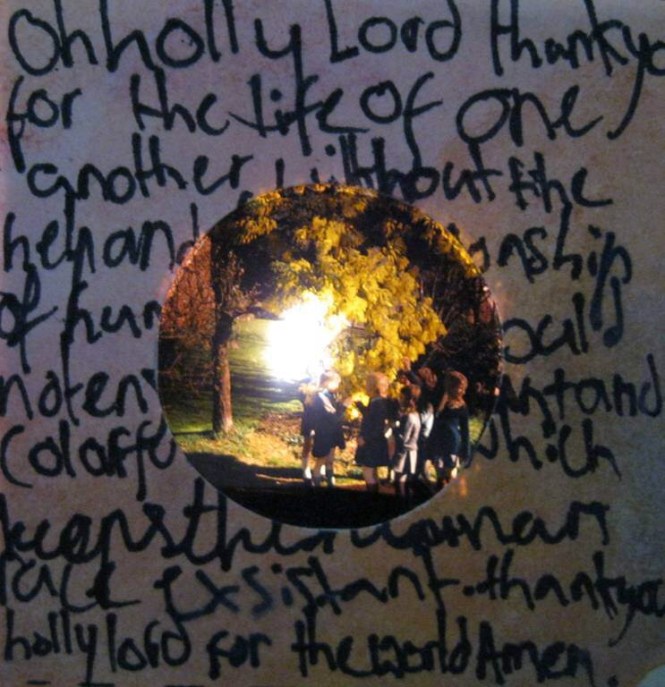 Oh holly Lord thankyo
for the life of one
another, without the
help and onship
of hum ould
not en nt and
Colorfu which
keeps the human
race exsistant. thankyou
holly lord for the world Amen.